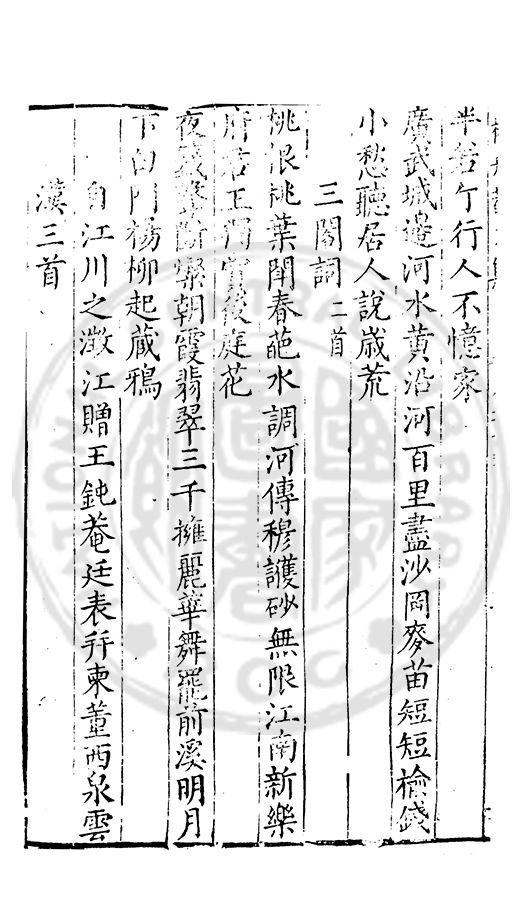 半若午行人不憶家
廣武城邊河水黄沿河百里盡沙岡麥苗短短榆錢
小愁聽居人說歲荒
三閣詞二首
桃根桃葉鬥春葩水調河傳穆護砂無限江南新樂
府君王獨賞後庭花
夜半鼓聲斷樂朝霞翡翠三千擁麗華舞罷前溪明月
下白門楊柳起藏鴉
自江川之澂江贈王鈍菴廷表并柬董西泉雲
漢三首